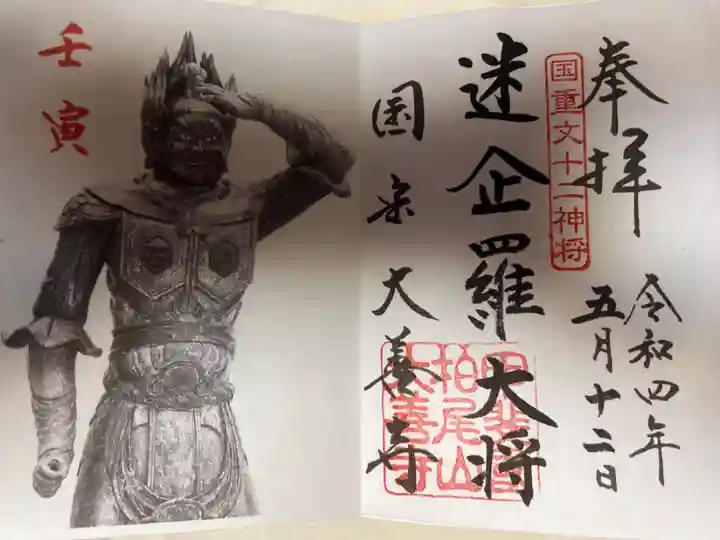 奉拝
令和四年
五月十二日
国重文十二神将
迷企羅大将
国宝大善寺
甲斐国
柏尾山
大善寺
壬寅